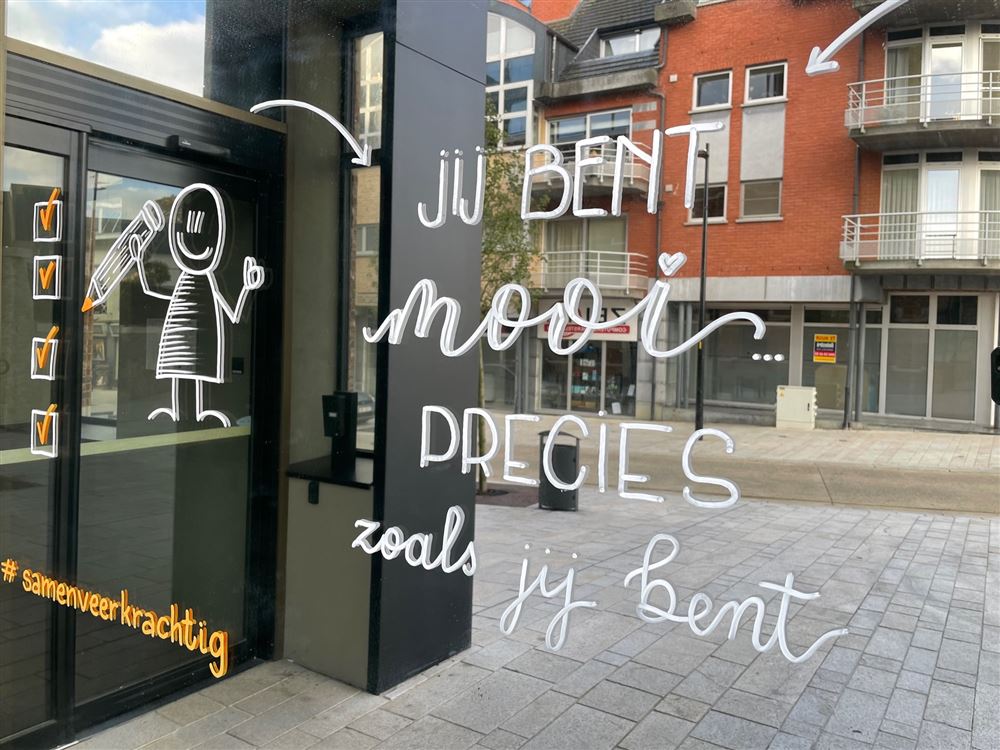 JIJ BENT
mooi...
PRECIES
zoals jij bent
# samenveerkrachtig
TE HUUR